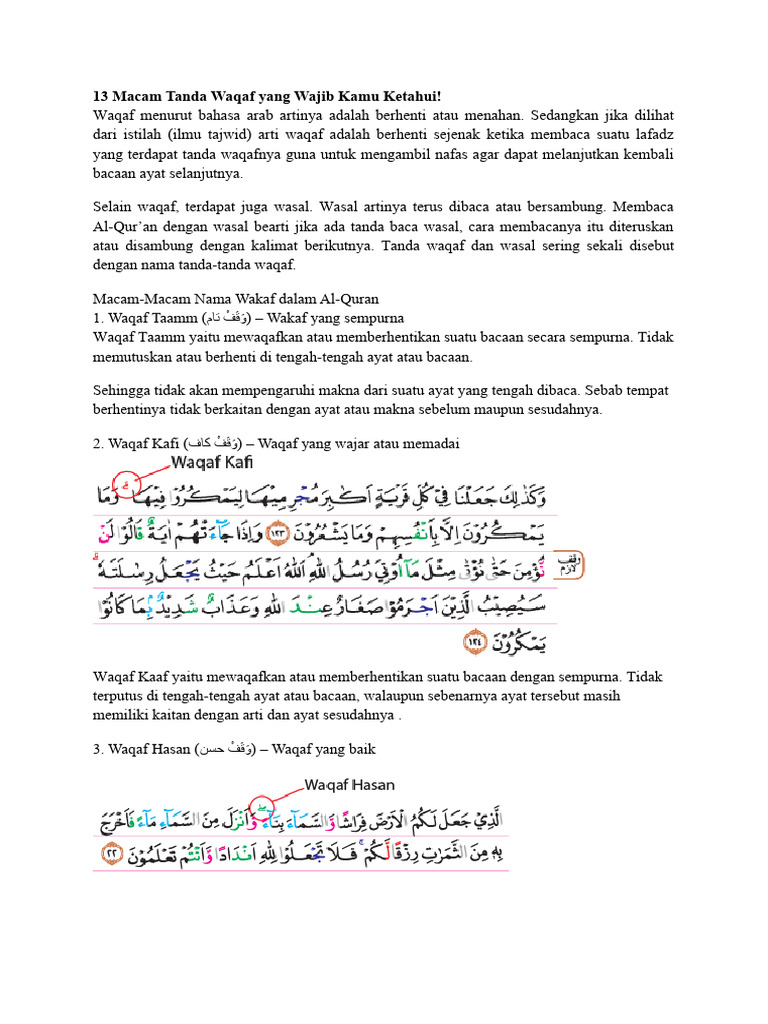 13 Macam Tanda Waqaf yang Wajib Kamu Ketahui!
Waqaf menurut bahasa arab artinya adalah berhenti atau menahan. Sedangkan jika dilihat
dari istilah (ilmu tajwid) arti waqaf adalah berhenti sejenak ketika membaca suatu lafadz
yang terdapat tanda waqafnya guna untuk mengambil nafas agar dapat melanjutkan kembali
bacaan ayat selanjutnya.
Selain waqaf, terdapat juga wasal. Wasal artinya terus dibaca atau bersambung. Membaca
Al-Qur’an dengan wasal bearti jika ada tanda baca wasal, cara membacanya itu diteruskan
atau disambung dengan kalimat berikutnya. Tanda waqaf dan wasal sering sekali disebut
dengan nama tanda-tanda waqaf.
Macam-Macam Nama Wakaf dalam Al-Quran
1. Waqaf Taamm (وَقَفْ تام) – Wakaf yang sempurna
Waqaf Taamm yaitu mewaqafkan atau memberhentikan suatu bacaan secara sempurna. Tidak
memutuskan atau berhenti di tengah-tengah ayat atau bacaan.
Sehingga tidak akan mempengaruhi makna dari suatu ayat yang tengah dibaca. Sebab tempat
berhentinya tidak berkaitan dengan ayat atau makna sebelum maupun sesudahnya.
2. Waqaf Kafi (وَقَفْ كاف) – Waqaf yang wajar atau memadai
Waqaf Kafi
وَكَذٰلِكَ جَعَلْنَا فِيْ كُلِّ قَرْيَةٍ اَكٰبِرَ مُجْرِمِيْهَا لِيَمْكُرُوْا فِيْهَاۗ وَمَا
يَمْكُرُوْنَ اِلَّا بِاَنْفُسِهِمْ وَمَا يَشْعُرُوْنَ ١٢٣ وَاِذَا جَاۤءَتْهُمْ اٰيَةٌ قَالُوْا لَنْ
نُّؤْمِنَ حَتّٰى نُؤْتٰى مِثْلَ مَآ اُوْتِيَ رُسُلُ اللّٰهِۘ اَللّٰهُ اَعْلَمُ حَيْثُ يَجْعَلُ رِسٰلَتَهٗۗ
وقف لازم
سَيُصِيْبُ الَّذِيْنَ اَجْرَمُوْا صَغَارٌ عِنْدَ اللّٰهِ وَعَذَابٌ شَدِيْدٌۢ بِمَا كَانُوْا
يَمْكُرُوْنَ ١٢٤
Waqaf Kaaf yaitu mewaqafkan atau memberhentikan suatu bacaan dengan sempurna. Tidak
terputus di tengah-tengah ayat atau bacaan, walaupun sebenarnya ayat tersebut masih
memiliki kaitan dengan arti dan ayat sesudahnya .
3. Waqaf Hasan (وَقَفْ حسن) – Waqaf yang baik
Waqaf Hasan
الَّذِيْ جَعَلَ لَكُمُ الْاَرْضَ فِرَاشًا وَّالسَّمَاۤءَ بِنَاۤءًۖ وَّاَنْزَلَ مِنَ السَّمَاۤءِ مَاۤءً فَاَخْرَجَ
بِهٖ مِنَ الثَّمَرٰتِ رِزْقًا لَّكُمْۚ فَلَا تَجْعَلُوْا لِلّٰهِ اَنْدَادًا وَّاَنْتُمْ تَعْلَمُوْنَ ٢٢